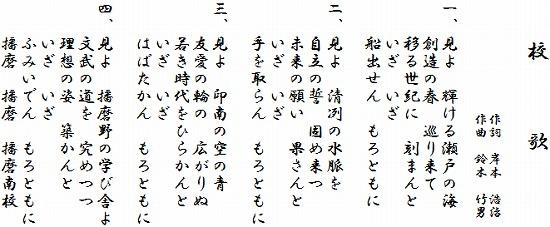 校歌
作詞 岸本 浩治
作曲 鈴木 竹男
一、見よ 輝ける瀬戸の海
創造の春 巡り来て
移る世紀に 刻まんと
いざ いざ
船出せん もろともに
二、見よ 清冽の水脈を
自立の誓 固め来つ
未来の願い 果さんと
いざ いざ
手を取らん もろともに
三、見よ 印南の空の青
友愛の輪の 広がりぬ
若き時代をひらかんと
いざ いざ
はばたかん もろともに
四、見よ 播磨野の学び舎よ
文武の道を 究めつつ
理想の姿 築かんと
いざ いざ
ふみいでん もろともに
播磨 播磨 播磨南校